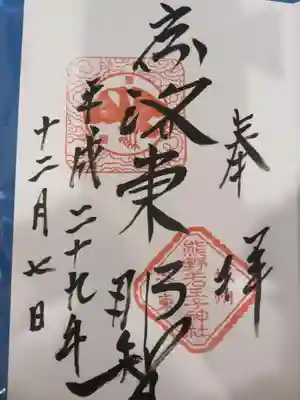 奉拝
京洛東那智
熊野若王子神社
平成二十九年
十二月七日